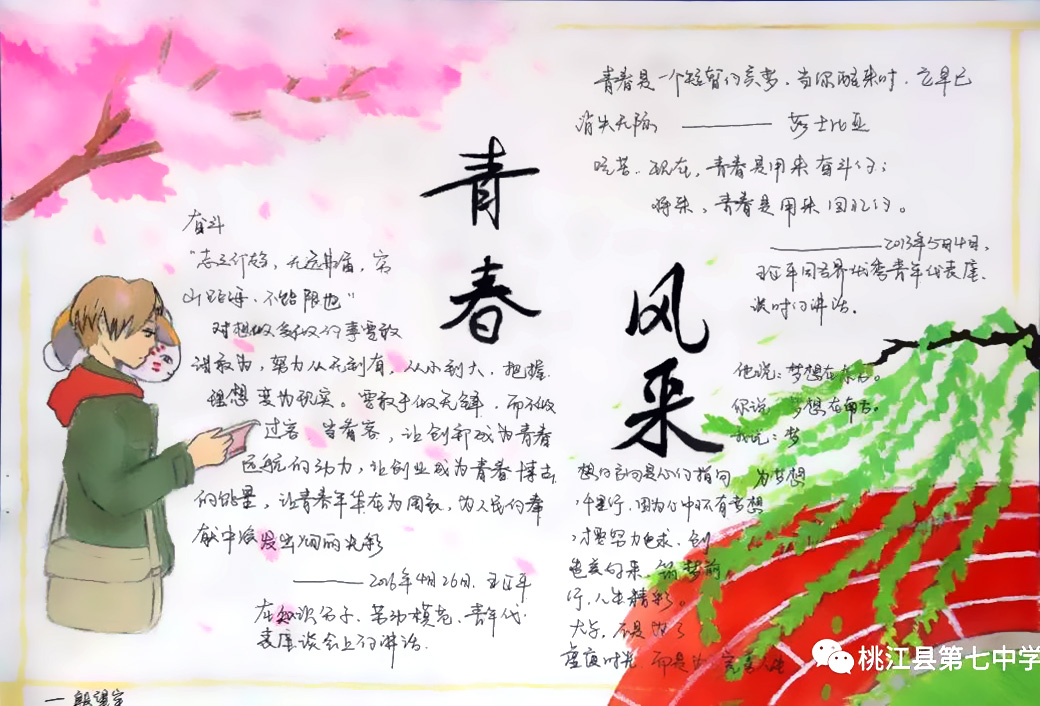 青春
风采
青春是一个短暂的美梦,当你醒来时,它早已
消失无踪 —— 莎士比亚
吃苦。现在,青春是用来奋斗的;
将来,青春是用来回忆的。
——2013年5月4日,
同各界优秀青年代表座
谈时的讲话.
奋斗
山距海,不能限也"
对想做爱做的事要敢
试敢为,努力从无到有,从小到大,把握
理想变为现实。要敢于做先锋,而不做
过客、当看客,让创新成为青春
远航的动力,让创业成为青春搏击
的能量,让青春年华在为国家、为人民的奉
献中焕发出绚丽光彩
——2016年4月26日,
在知识分子、劳动模范、青年代
表座谈会上的讲话.
他说:梦想在东方。
你说:梦想在南方。
我说:梦
想的方向是心的指向 为梦想
千里行,因为心中怀有梦想
才要努力追求,创
造美好未 筑梦前
行,人生精彩。
大学,不是为了
虚度时光 而是为
桃江县第七中学